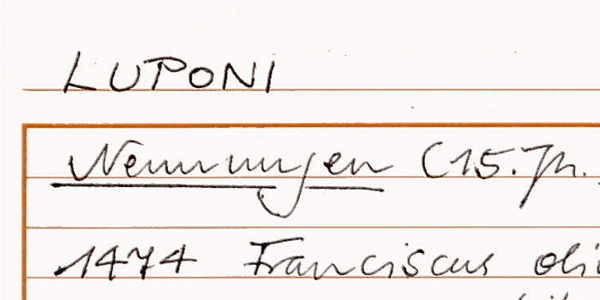 LUPONI
Nennungen (15. Jh.
1474 Franciscus